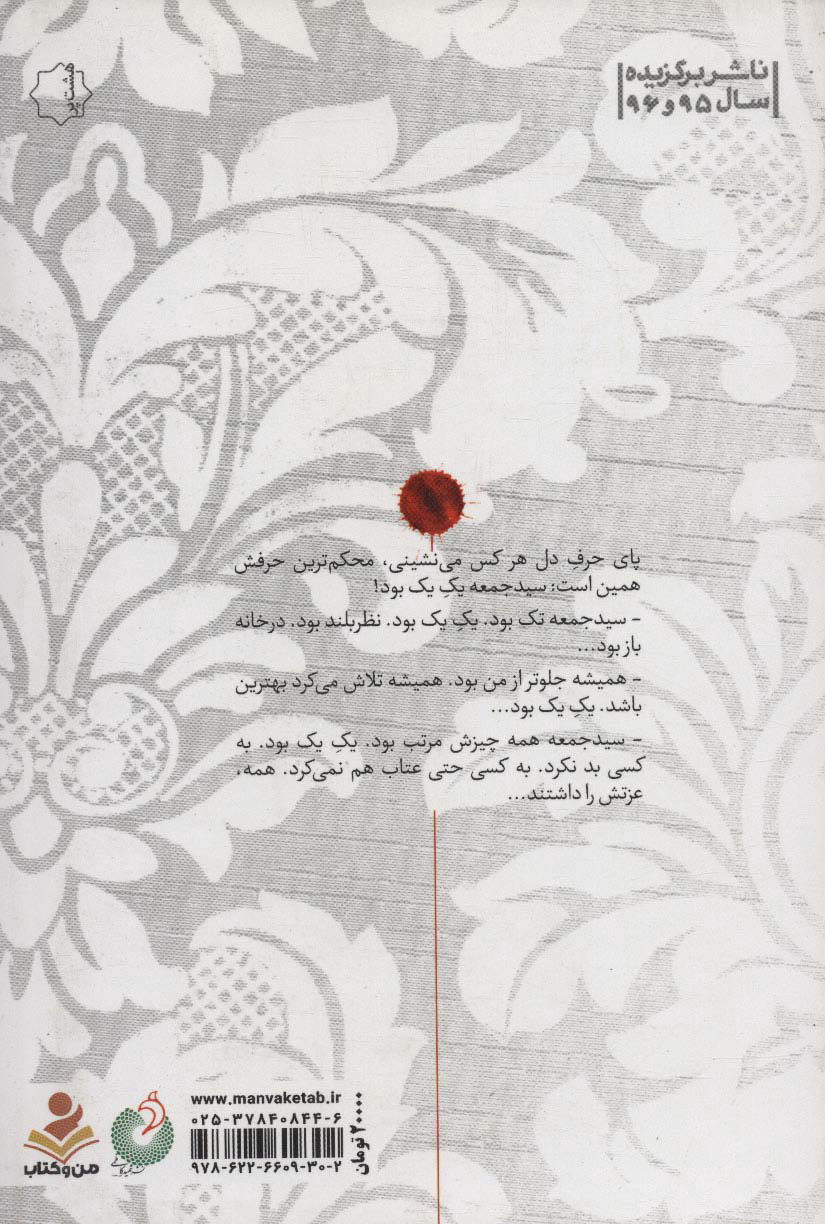 ناشر برگزیده
سال ۹۵ و ۹۶
هشت پر
پای حرفِ دل هر کس می‌نشینی، محکم‌ترین حرفش
همین است: سیدجمعه یکِ یک بود!
- سیدجمعه تک بود. یکِ یک بود. نظربلند بود. درخانه
باز بود...
- همیشه جلوتر از من بود. همیشه تلاش می‌کرد بهترین
باشد. یکِ یک بود...
- سیدجمعه همه چیزش مرتب بود. یکِ یک بود. به
کسی بد نکرد. به کسی حتی عتاب هم نمی‌کرد. همه،
عزتش را داشتند...
www.manvaketab.ir
۰۲۵-۳۷۸۴۰۸۴۴-۶
۹۷۸-۶۲۲-۶۶۰۹-۳۰-۲
۲۰۰۰۰ تومان
من و کتاب